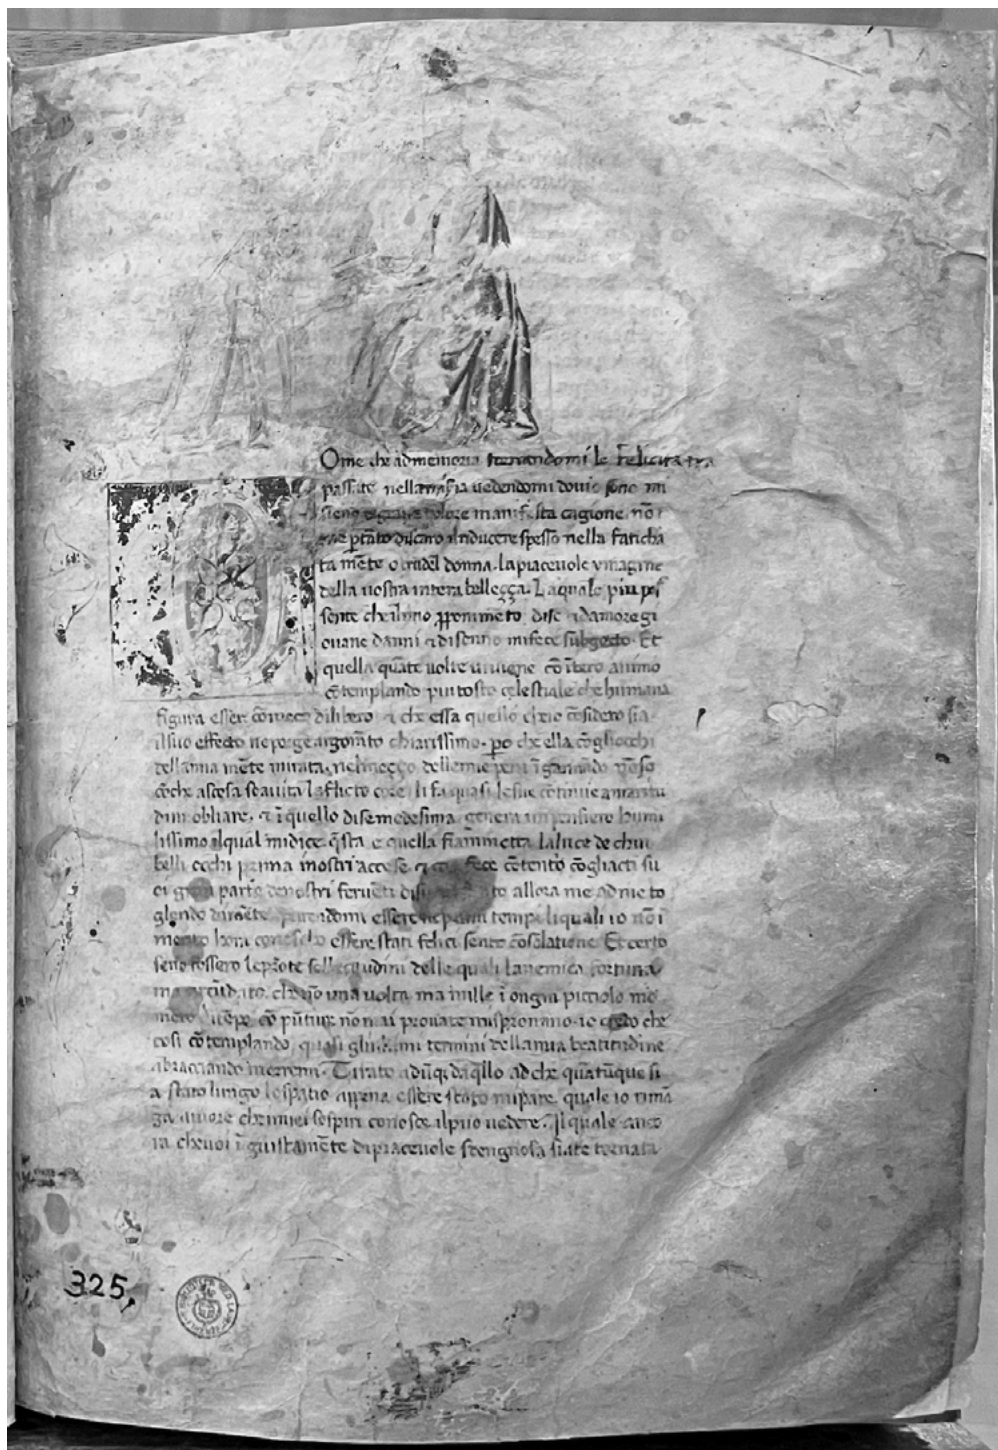 Ome che ad memoria tornandomi le felicità tra
passate nella vedendomi dovio sono mi
sieno di grave dolore manifesta cagione. nō
me p̄ tāto discaro il riducere spesso nella faticha
ta mēte o crudel donna. la piacevole ymagine
della vostra intera belleçça. La quale piu pos
sente che il mio pponimēto. di se & damore gi
ovane danni & di senno mi fece subgecto. Et
quella quāte volte mi viene cō ītero animo
cōtemplando piu tosto celestiale che humana
figura esser cō meco dilibero & che essa quello chio cōsidero sia.
il suo effecto ne porge argomēto chiarissimo. po che ella cō gliocchi
della mia mēte mirata. nel meçço delle mie pene īgannādo nō so
cō che ascosa soavità laflicto core. li fa quasi le sue cōtinue amaritu
dini obliare. & ī quello di se medesima genera un pensiero humi
lissimo il qual mi dice q̄sta e quella fiāmmetta la luce de chui
belli occhi prima i nostri accese & fece cōtento cō gliacti su
oi gran parte de nostri ferventi disii allora me ad me to
gliendo di mēte parendomi essere ne primi tempi li quali io nō i
mento hora conosco essere stati felici sento cōsolatione. Et certo
se nō fossero le prōte sollecitudini delle quali la nemica fortuna
ma circūdato. che nō una volta ma mille ī ongni picciolo mo
mēto di tēpo cō pūture nō mai provate mi spronano. io credo che
cosi cōtemplando quasi gliultimi termini della mia beatitudine
abracciando mi morrei. Tirato adūq; da q̄llo ad che quātūque si
a stato lungo lo spatio appena essere stato mi pare. quale io rima
ga amore che i miei sospiri conosce il puo vedere. Il quale anco
ra che voi īgiustamēte di piacevole sdengnosa siate tornata
325